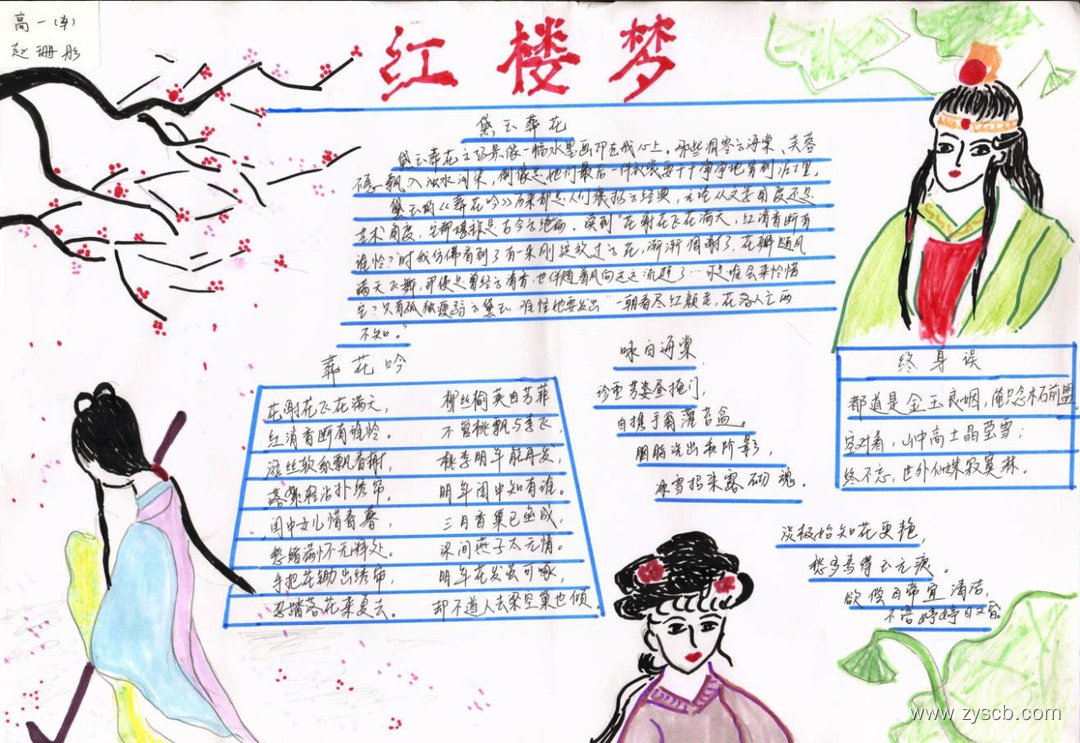 高一(本)
赵珊彤
红楼梦
黛玉葬花
黛玉葬花之场景像一幅水墨画印在我心上。那些凋零的海棠、芙蓉
不忍飘入浊水沟渠,倒像是她们最后一件衣裳要干干净净地肯到泥土里。
黛玉的《葬花吟》历来都是人们票括的经典,无论从文学角度还是
艺术角度,它都堪称是古今的绝唱。读到"花谢花飞花满天,红消香断有
谁怜?"时我仿佛看到了有一朵刚绽放过的花,渐渐凋谢了,花瓣随风
满天飞舞,即使是曾经的有香也伴随着风向远远流逝了…可是谁会来怜惜
它?只有孤独瘦弱的黛玉,难怪她要发出"一朝春尽红颜老,花落人亡两
不知。"
葬花吟
花谢花飞花满天,
红消香断有谁怜。
游丝软系飘春榭,
落絮轻沾扑绣帘,
闺中女儿惜春暮,
愁绪满怀无释处。
手把花锄出绣帘,
忍踏落花来复去。
柳丝榆荚自芳菲
不管桃飘与李飞,
桃李明年能再发,
明年闺中知有谁。
三月香巢已垒成,
梁间燕子太无情。
明年花发虽可啄,
却不道人去梁空巢也倾。
咏白海棠
珍重芳姿昼掩门,
自携手瓮灌苔盆。
胭脂洗出秋阶影,
冰雪招来露砌魂。
淡极始知花更艳,
愁多焉得玉无痕。
欲偿白帝宜清洁,
不语婷婷日又昏。
终身误
都道是金玉良姻,俺只念木石前盟
空对着,山中高士晶莹雪;
终不忘,世外仙姝寂寞林。
www.zyscb.com